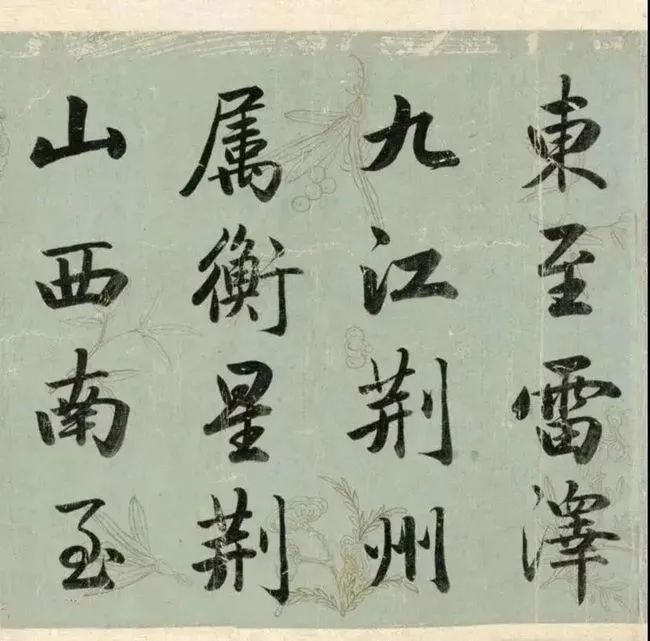 東至雷澤
九江荆州
属衡星荆
山西南至